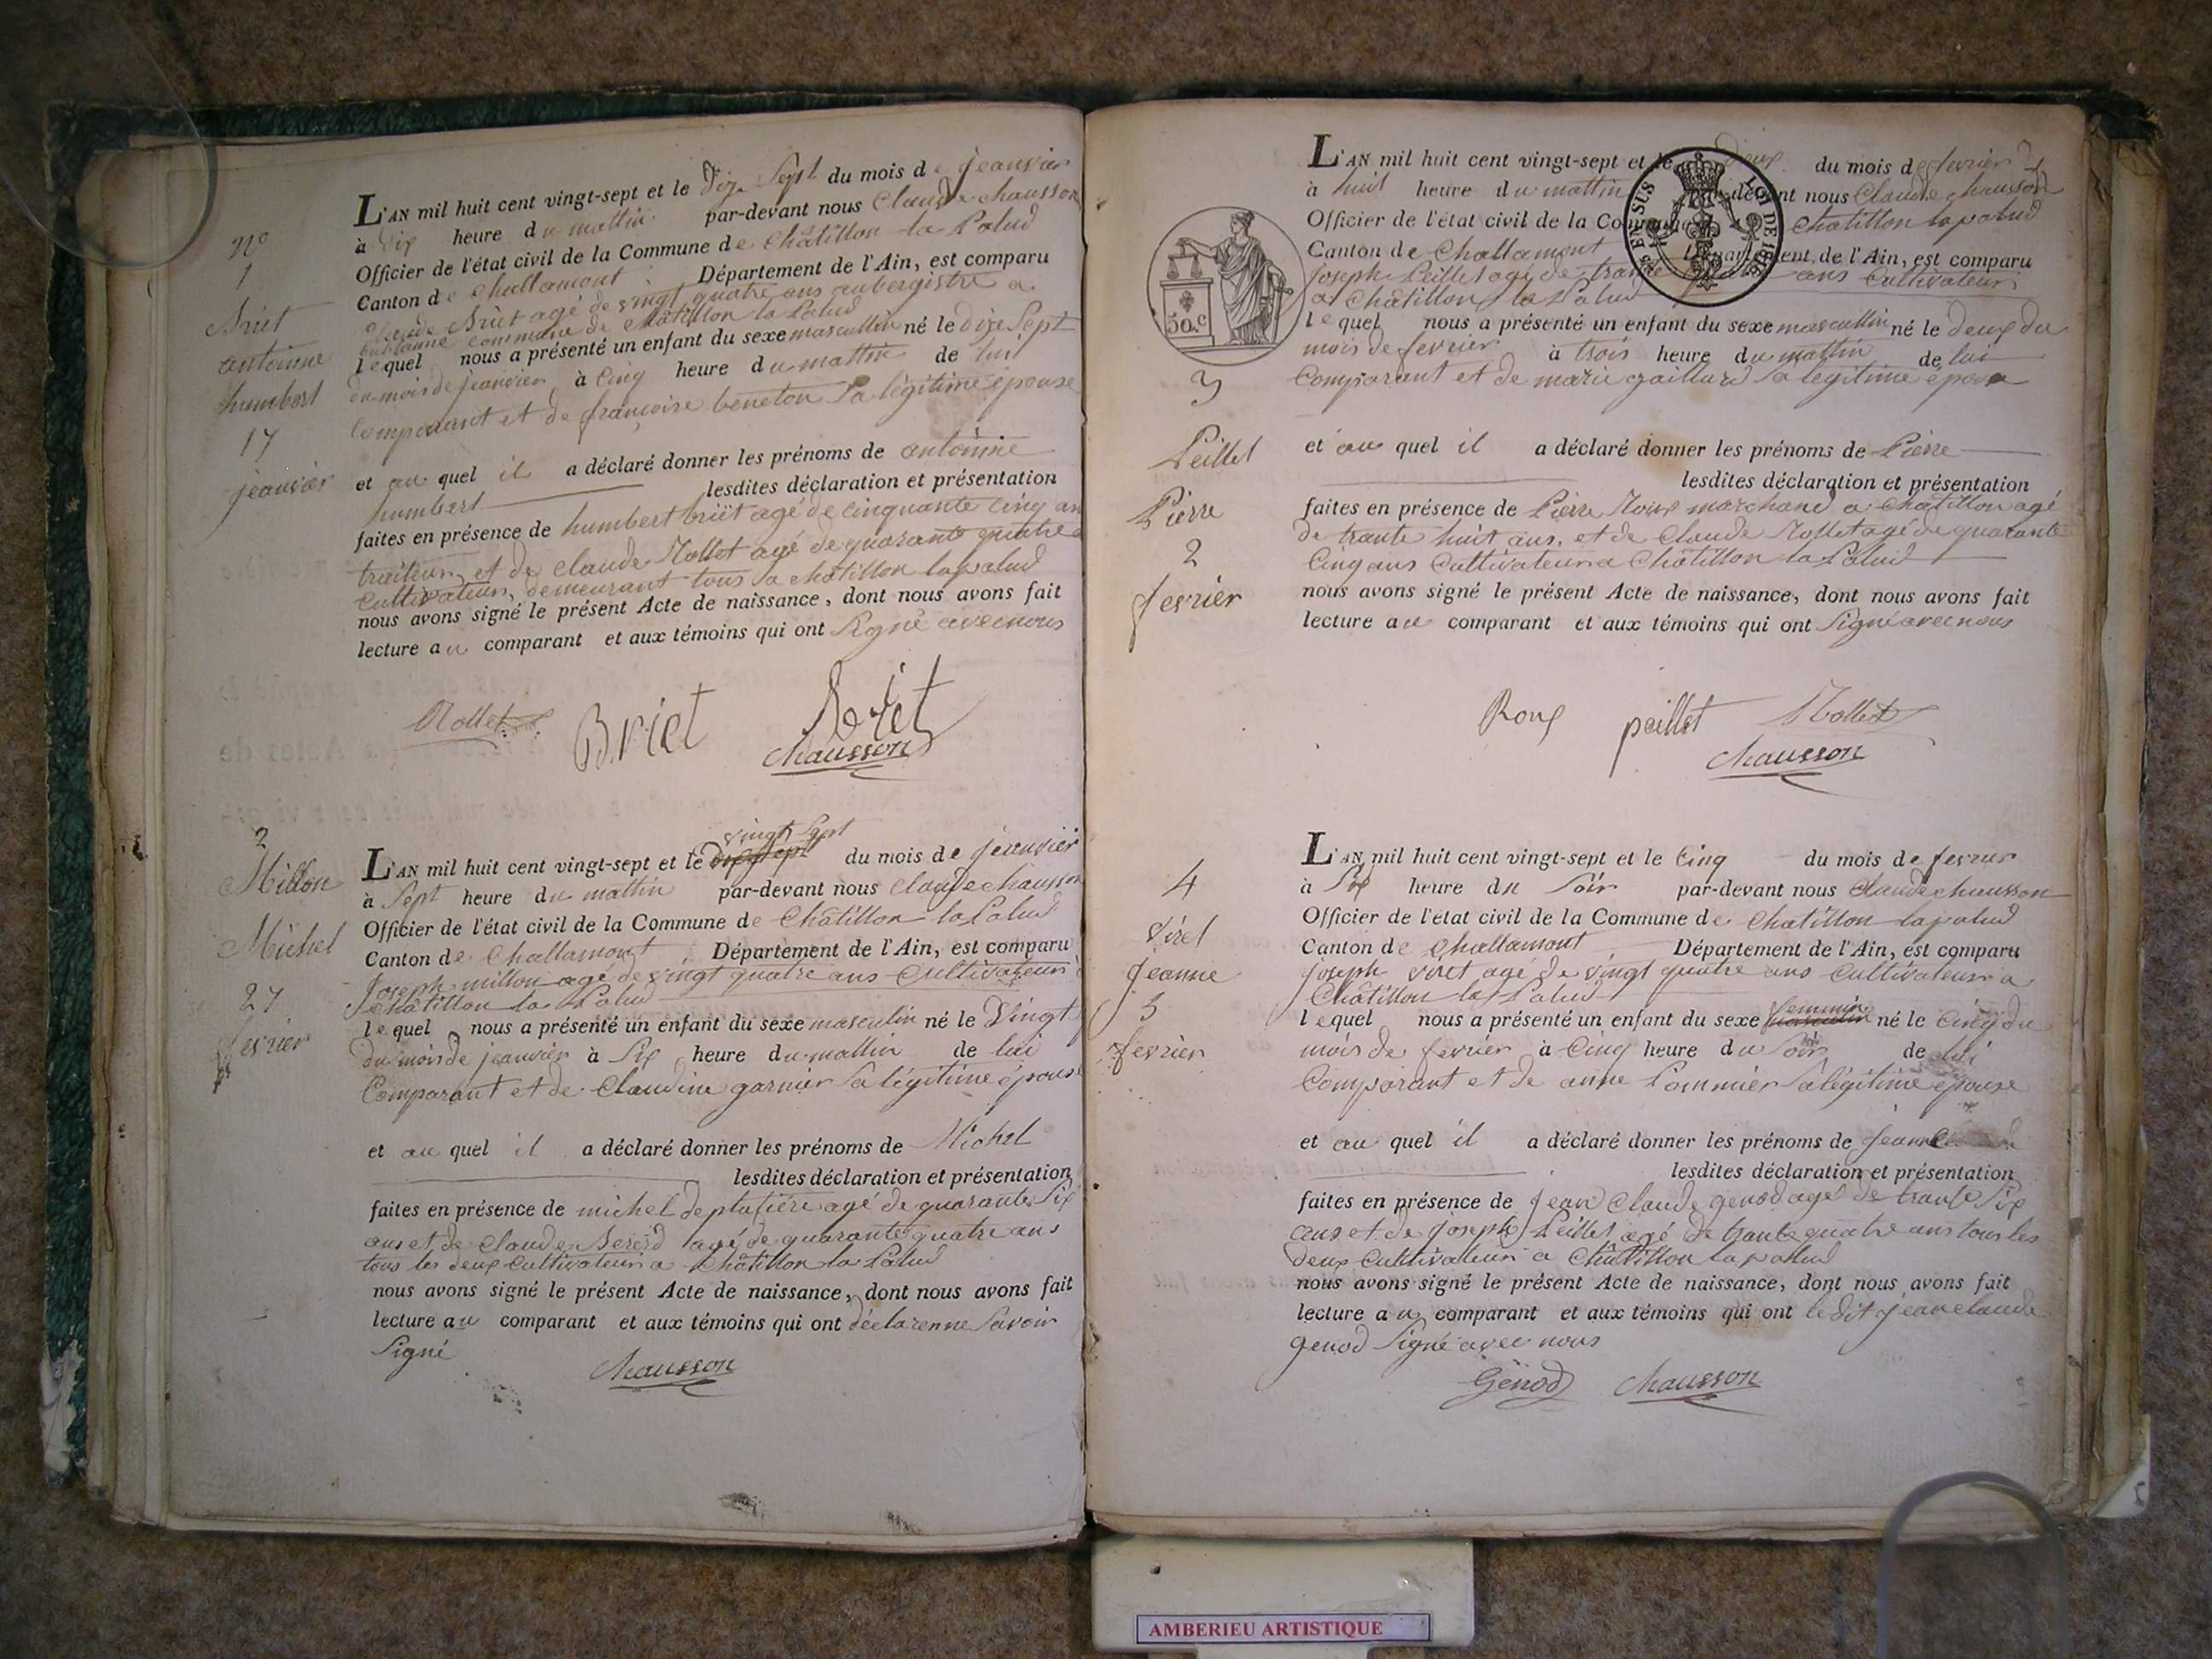 nº
1
Briet
antoinne
humbert
17
jeanvier
L'AN mil huit cent vingt-sept et le dix Sept du mois de jeanvier
à dix heure du mattin par-devant nous Claude chausson
Officier de l'état civil de la Commune de châtillon la Palud
Canton de Challamont Département de l'Ain, est comparu
Claude Briet agé de vingt quatre ans aubergistre a
commune de châtillon la Palud
lequel nous a présenté un enfant du sexe mascullin né le dixe Sept
du mois de jeanvier à Cinq heure du mattin de lui
Comparant et de françoise beneton Sa légitime épouse
et au quel il a déclaré donner les prénoms de antoinne
humbert lesdites déclaration et présentation
faites en présence de humbert briet agé de cinquante cinq an
traiteur, et de claude Mollet agé de quarante quatre
Cultivateur, demeurant tous a châtillon lapalud
nous avons signé le présent Acte de naissance, dont nous avons fait
lecture au comparant et aux témoins qui ont Signé avec nous
Mollet Briet Briet
chausson
2
Millon
Michel
27
fevrier
vingt Sept
L'AN mil huit cent vingt-sept et le dix sept du mois de jeanvier
à Sept heure du mattin par-devant nous Claude chausson
Officier de l'état civil de la Commune de Châtillon la Palud
Canton de Challamont Département de l'Ain, est comparu
Joseph millon agé de vingt quatre ans Cultivateur
châtillon la Palud
lequel nous a présenté un enfant du sexe masculin né le Vingt
du mois de jeanvier à Six heure du mattin de lui
Comparant et de Claudine garnier Sa légitime épouse
et au quel il a déclaré donner les prénoms de Michel
lesdites déclaration et présentation
faites en présence de michel deplatiere agé de quarante Six
ans et de Claude agé de quarante quatre ans
tous les deux Cultivateur a châtillon la Palud
nous avons signé le présent Acte de naissance, dont nous avons fait
lecture au comparant et aux témoins qui ont déclarenne Savoir
Signé
chausson
50.c
EN SUS
LOI DE
3
Peillet
Pierre
2
fevrier
L'AN mil huit cent vingt-sept et le deux du mois de fevrier
à huit heure du mattin par-devant nous Claude chausson
Officier de l'état civil de la Commune châtillon lapalud
Canton de Challamont Département de l'Ain, est comparu
Joseph Peillet agé de trante ans Cultivateur
a Châtillon la Palud
lequel nous a présenté un enfant du sexe mascullin né le deux du
mois de fevrier à trois heure du mattin de lui
Comparant et de marie gaillard Sa légitime épouse
et au quel il a déclaré donner les prénoms de Pierre
lesdites déclaration et présentation
faites en présence de Pierre Roux marchand a Châtillon agé
de trante huit ans, et de Claude Mollet agé de quarante
Cinq ans Cultivateur a Châtillon la Palud
nous avons signé le présent Acte de naissance, dont nous avons fait
lecture au comparant et aux témoins qui ont Signé avec nous
Roux peillet Mollet
chausson
4
Viret
jeanne
5
fevrier
L'AN mil huit cent vingt-sept et le Cinq du mois de fevrier
à Six heure du Soir par-devant nous Claude chausson
Officier de l'état civil de la Commune de Chatillon lapalud
Canton de Challamont Département de l'Ain, est comparu
joseph viret agé de vingt quatre ans Cultivateur a
Châtillon la Palud
lequel nous a présenté un enfant du sexe femminin né le cinq du
mois de fevrier à Cinq heure du Soir de lui
Comparant et de anne Pommier Sa légitime épouse
et au quel il a déclaré donner les prénoms de jeanne
lesdites déclaration et présentation
faites en présence de jean Claude genod agé de trante Six
ans et de joseph Peillet agé de trante quatre ans tous les
deux Cultivateur a Châtillon la palud
nous avons signé le présent Acte de naissance, dont nous avons fait
lecture au comparant et aux témoins qui ont le dit jean claude
genod Signé avec nous
Genod chausson
AMBERIEU ARTISTIQUE